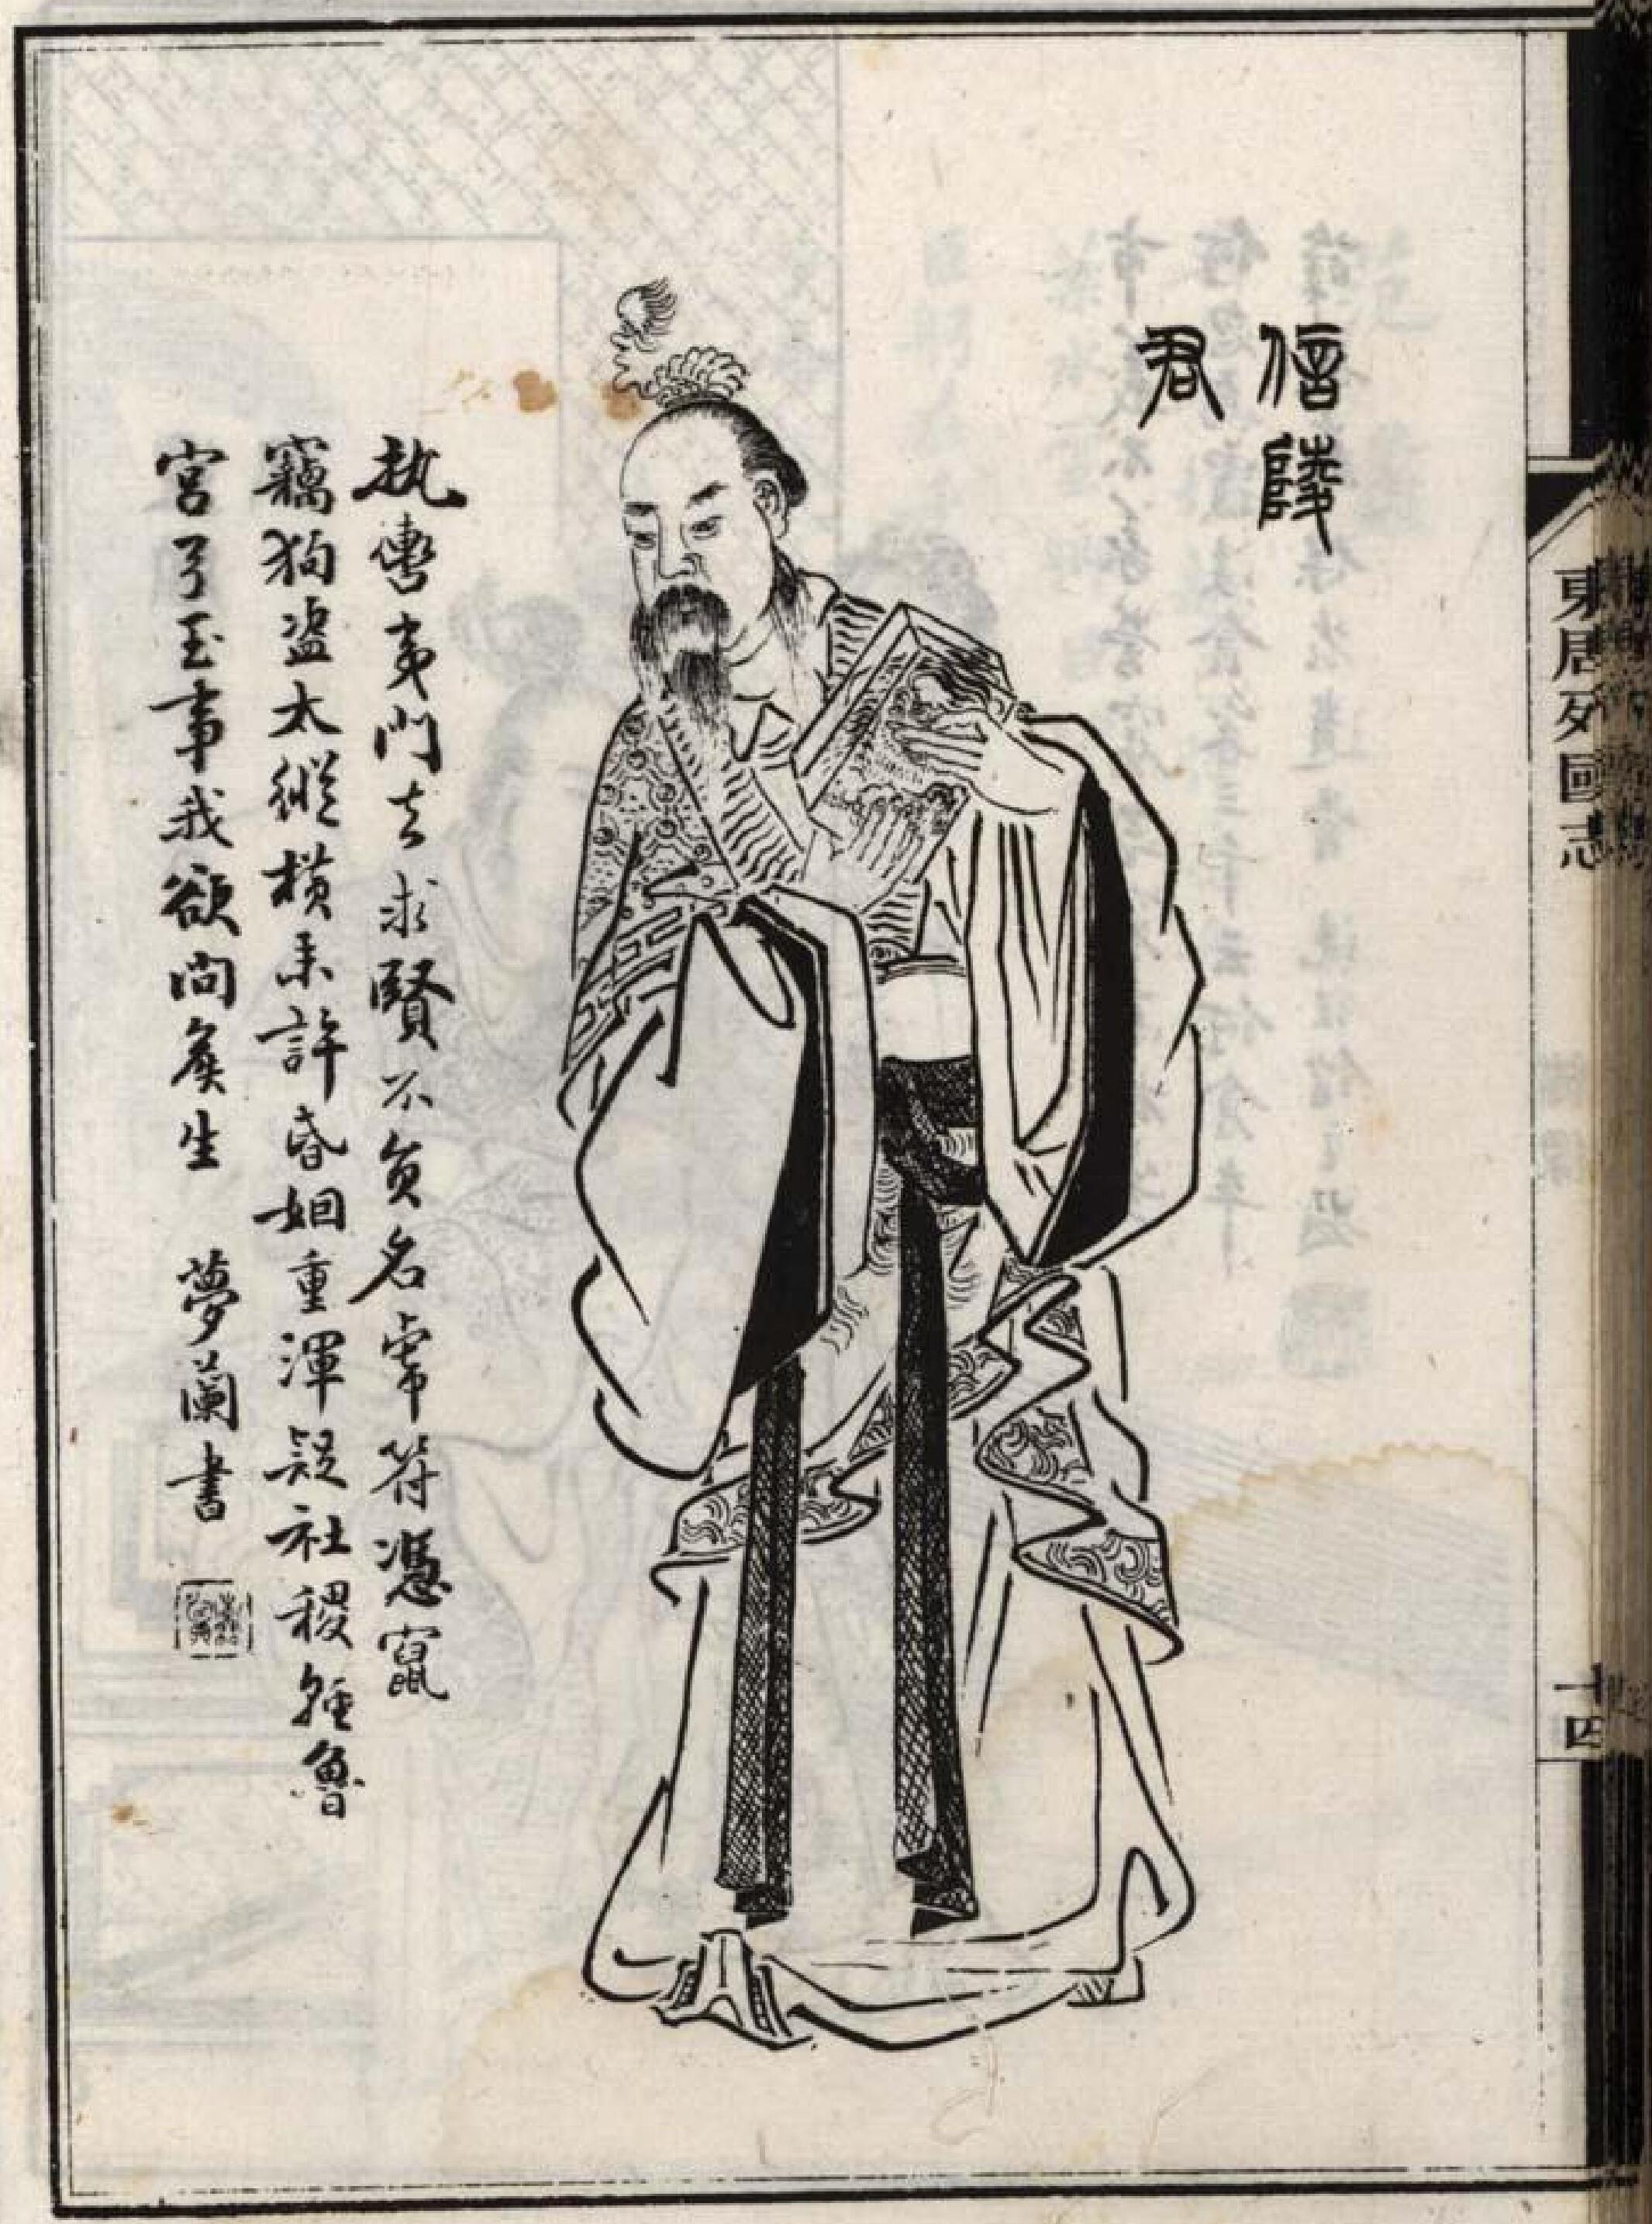 東周列國志
十四
信陵
君
執轡夷門去求賢不負名虎符憑鼠
竊狗盜太縱橫未許昏姻重渾疑社稷輕魯
宮弓玉事我欲問矦生 夢蘭書